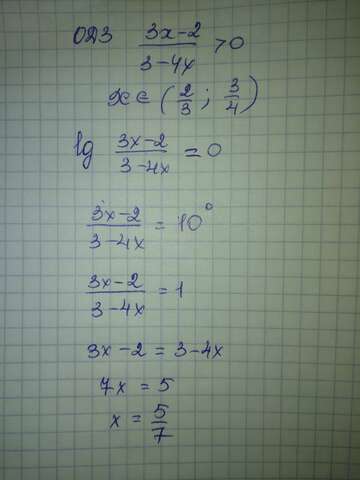 ОДЗ (3x-2)/(3-4x) > 0
x ∈ (2/3; 3/4)
lg (3x-2)/(3-4x) = 0
(3x-2)/(3-4x) = 10⁰
(3x-2)/(3-4x) = 1
3x - 2 = 3 - 4x
7x = 5
x = 5/7